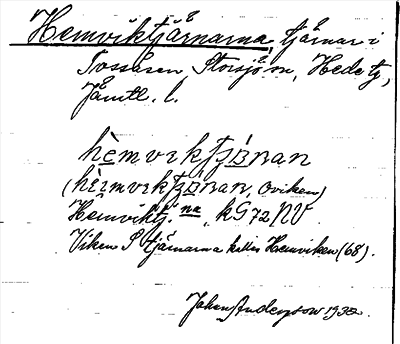 Hemviktjärnarna, tjärnar i
Tossåsen, Storsjö sn, Hede tg,
Jämtl. l.
hèmvıktjɑ̈́ṇan
(hèımvıktjɑ̈́ṇan, Oviken)
Hemviktj. na, kG 72 NV
Viken S tjärnarna kallas Hemviken (68).
Johan Anderzson 1932.